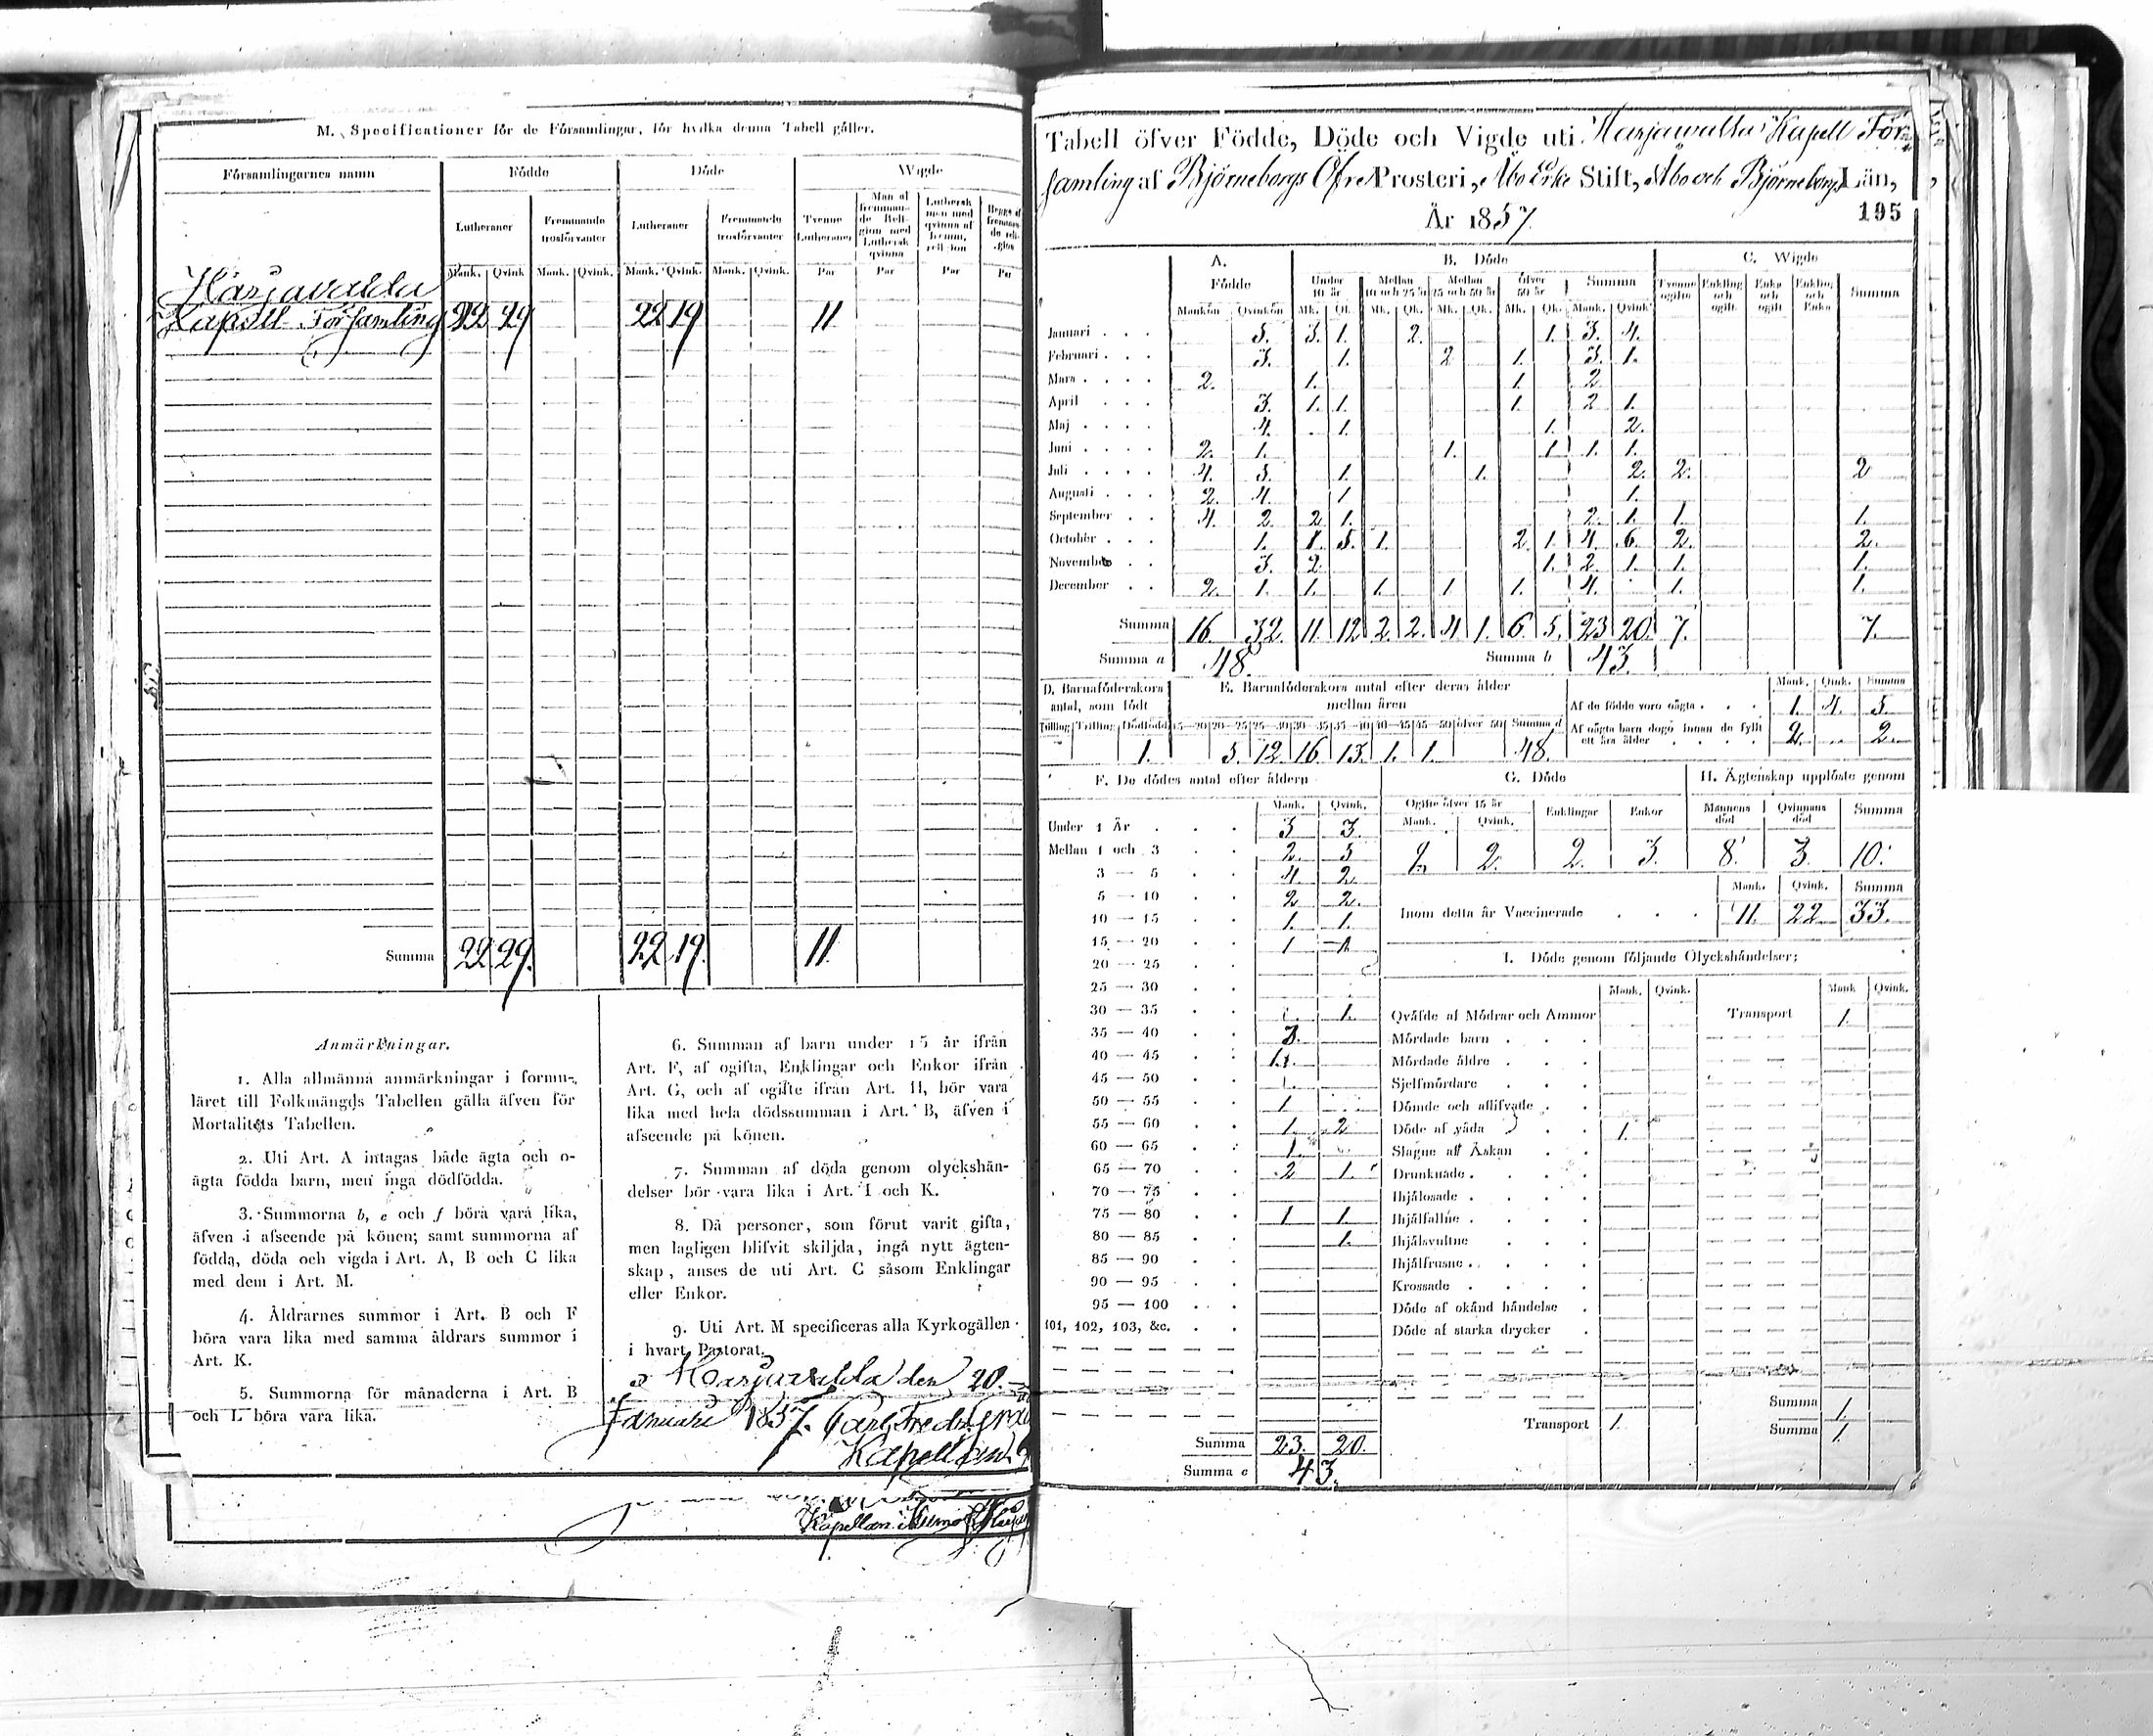 M. Specificationer för de Församlingar, för hvilka denna Tabell gäller.
Församlingarnes namn Födde Döde Wigde
Lutheraner Fremmande trosförvanter Lutheraner Fremmande trosförvanter Tvenne Lutheraner Man af fremmande Religion med Luthersk qvinna Luthersk man med qvinna af fremm. religion Begge af fremmande religion
Mank. Qvink Mank. Qvink. Mank. Qvink. Mank. Qvink. Par Par Par Par
Harjavalda
Kapell Församling 22 29 22 19 11
Summa 22 29. 22 19. 11
Anmärkningar.
1. Alla allmänna anmärkningar i formu-
läret till Folkmängds Tabellen gälla äfven för
Mortalitets Tabellen.
2. Uti Art. A intagas både ägta och o-
ägta födda barn, men inga dödfödda.
3. Summorna b, e och f böra vara lika,
äfven i afseende på könen; samt summorna af
födda, döda och vigda i Art. A, B och C lika
med dem i Art. M.
4. Åldrarnes summor i Art. B och F
böra vara lika med samma åldrars summor i
Art. K.
5. Summorna för månaderna i Art. B
och L böra vara lika.
6. Summan af barn under 15 år ifrån
Art. F, af ogifta, Enklingar och Enkor ifrån
Art. G, och af ogifte ifrån Art. H, bör vara
lika med hela dödssumman i Art. B, äfven i
afseende på könen.
7. Summan af döda genom olyckshän-
delser bör vara lika i Art. I och K.
8. Då personer, som förut varit gifta,
men lagligen blifvit skiljda, ingå nytt ägten-
skap, anses de uti Art. C såsom Enklingar
eller Enkor.
9. Uti Art. M specificeras alla Kyrkogällen
i hvart Pastorat.
Harjavalda den 20.
Januari 1857. Carl Fredr.
Kapellan
Kapellan i
Tabell öfver Födde, Döde och Vigde uti Harjawalla Kapell För
samling af Björneborgs Öfre Prosteri, Åbo Erke Stift, Åbo och Björneborgs Län,
År 1857. 195
A. Födde B. Döde C. Wigde
Under 10 år Mellan 10 och 25 år Mellan 25 och 50 år öfver 50 år Summa Tvenne ogifte Enkling och ogift Enka och ogift Enkling och Enka Summa
Mankön Qvinkön Mk. Qk. Mk. Qk. Mk. Qk. Mk. Qk. Mank. Qvink
Januari 5. 3. 1. 2. 1. 3. 4.
Februari 3. 1. 2 1. 3. 1.
Mars 2. 1. 1. 2
April 3. 1. 1. 1. 2 1.
Maj 4. 1. 1. 2.
Juni 2. 1. 1. 1 1. 1.
Juli 4. 5. 1. 1. 2. 2. 2
Augusti 2. 4. 1 1.
September 4. 2. 2 1. 2. 1. 1. 1.
October 1. 1. 5. 1. 2. 1. 4. 6. 2. 2.
November 3. 2. 1. 2. 1. 1. 1.
December 2. 1. 1. 1. 1 1. 4. 1. 1.
Summa 16. 32. 11. 12 2. 2. 4 1. 6. 5. 23 20. 7. 7.
Summa a 48. Summa b 43.
D. Barnaföderskors antal, som födt E. Barnaföderskors antal efter deras ålder mellan åren Mank. Qink. Summa
Af de födde voro oägta 1. 4. 5.
Tvilling Trilling Dödfödd 15—20 20—25 25—30 30—35 35—40 40—45 45—50 öfver 50 Summa d
Af oägta barn dogo innan de fyllt ett års ålder 2. 2.
1. 5. 12. 16. 13. 1. 1. 48.
F. De dödes antal efter åldern
Mank. Qvink.
Under 1 År 3 3.
Mellan 1 och 3 2. 5
3 — 5 4. 2
5 — 10 2 2.
10 — 15 1. 1.
15 — 20 1 1
20 — 25
25 — 30
30 — 35 1.
35 — 40 3.
40 — 45
45 — 50
50 — 55 1
55 — 60 1. 2
60 — 65 1.
65 — 70 2 1.
70 — 75
75 — 80 1 1.
80 — 85 1.
85 — 90
90 — 95
95 — 100
101, 102, 103, &c.
Summa 23. 20.
Summa c 43.
G. Döde H. Ägtenskap upplöste genom
Ogifte öfver 15 år Enklingar Enkor Männens död Qvinnans död Summa
Mank. Qvink.
2. 2. 3. 8. 3. 10.
Mank. Qvink. Summa
Inom detta år Vaccinerade 11. 22 33.
I. Döde genom följande Olyckshändelser;
Mank. Qvink. Mank Qvink.
Qväfde af Mödrar och Ammor Transport 1.
Mördade barn
Mördade äldre
Sjelfmördare
Dömde och aflifvade
Döde af våda 1.
Slagne af Åskan
Drunknade
Ihjälosade
Ihjälfallne
Ihjälsvultne
Ihjälfrusne
Krossade
Döde af okänd händelse
Döde af starka drycker
Summa 1.
Transport 1. Summa 1.